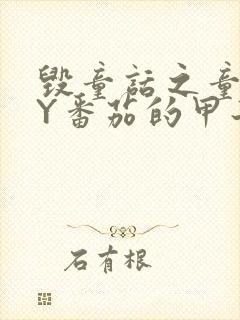 毁童话之童
Y番茄的甲
石有根